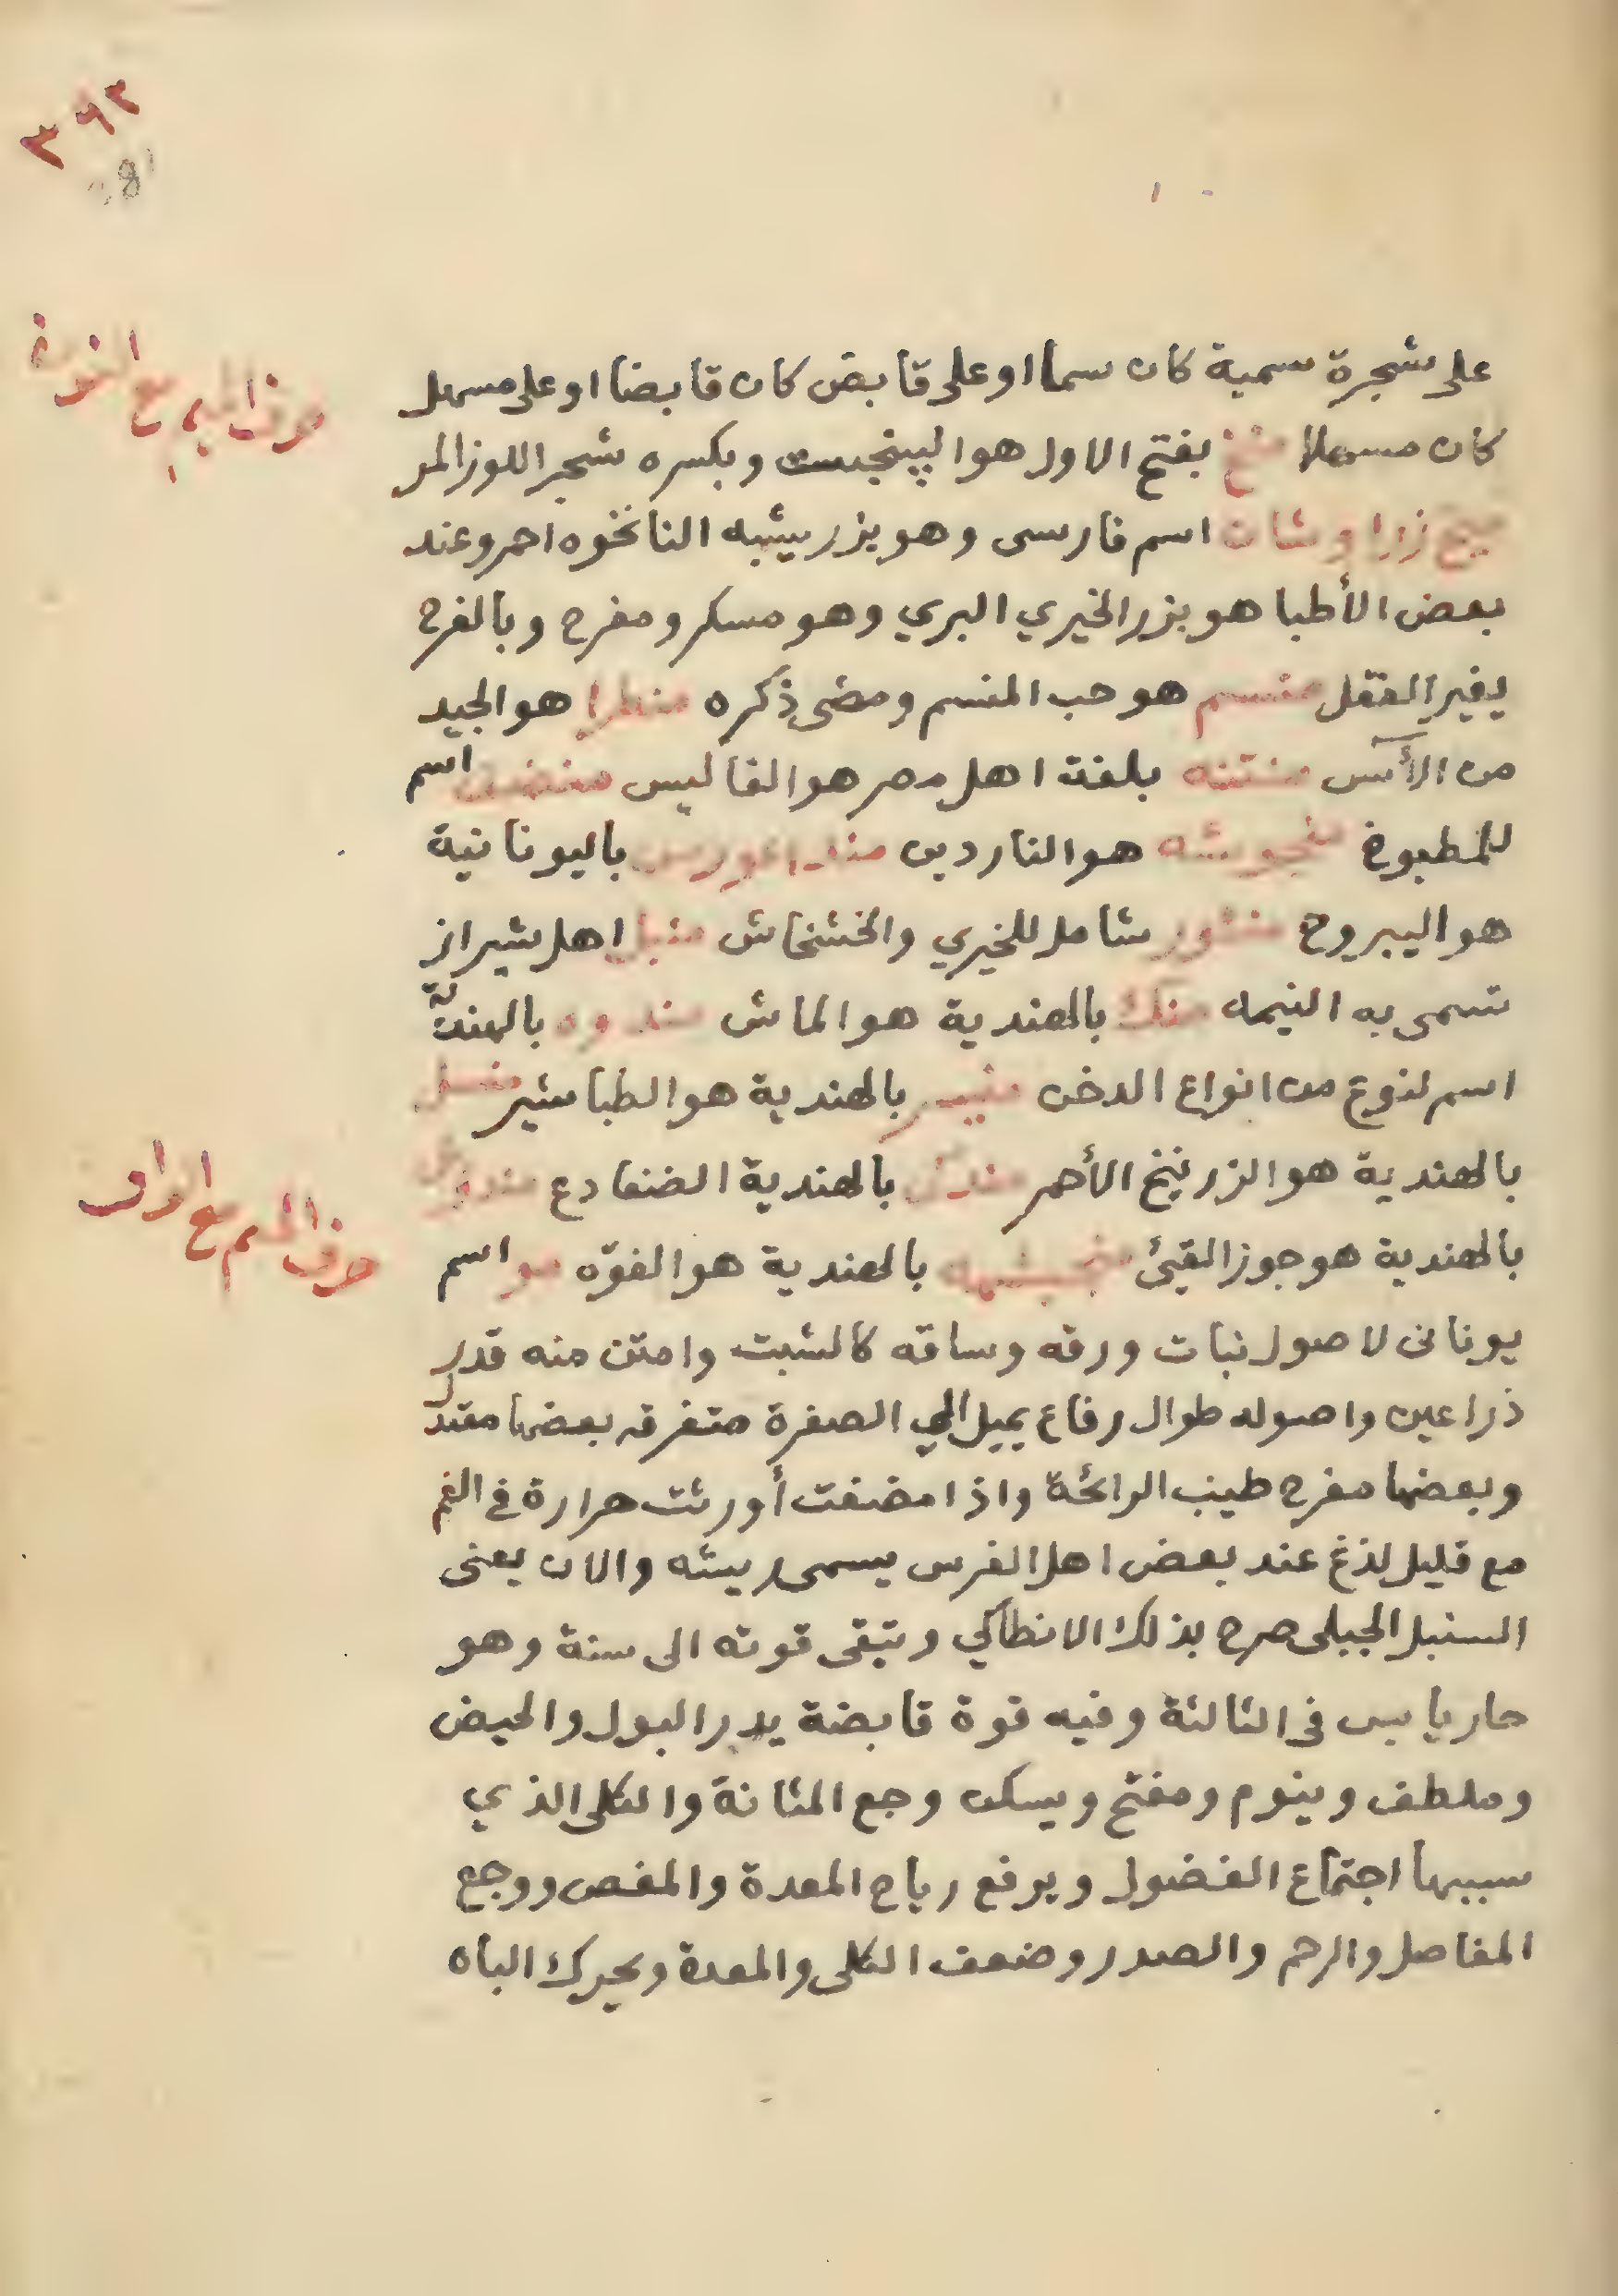 ٣٦٢
حرف الميم مع النون
على شجرة سمية كان سما او على قابض كان قابضا او على مسهل
كان مسهلا منج بفتح الاول هو البنجست وبكسره شجر اللوز المر
زراوشان اسم فارسى وهو بزر يشبه النانخوه احمر وعند
بعض الأطبا هو بزر الخيري البري وهو مسكر ومفرح وبالفرح
يغير العقل منسم هو حب المنسم ومضى ذكره هو الجيد
من الآس منتنه بلغة اهل مصر هو الغاليس اسم
للمطبوخ هو الناردين باليونانية
هو اليبروح منثور شامل للخيري والخشخاش اهل شيراز
تسمى به النيمه منك بالهندية هو الماش مندوه بالهندية
اسم لنوع من انواع الدخن بالهندية هو الطباشير منسل
بالهندية هو الزرنيخ الأحمر مندك بالهندية الضفادع
بالهندية هو جوز القيئ بالهندية هو الفوّه مو اسم
حرف الميم مع الواو
يونانى لاصول نبات ورقه وساقه كالشبت وامتن منه قدر
ذراعين واصوله طوال رفاع يميل الي الصفرة متفرقه بعضها
وبعضها مفرح طيب الرائحة واذا مضغت أورثت حرارة في الفم
مع قليل لذغ عند بعض اهل الفرس يسمى ريشه والان يعنى
السنبل الجبلى صرح بذلك الانطاكي وتبقى قوته الى سنة وهو
حار يابس فى الثالثة وفيه قوة قابضة يدر البول والحيض
وملطف وينوم ومفتح ويسكن وجع المثانة والكلى الذي
سببها اجتماع الفضول ويرفع رياح المعدة والمغص ووجع
المفاصل والرحم والصدر وضعف الكلى والمعدة ويحرك الباه